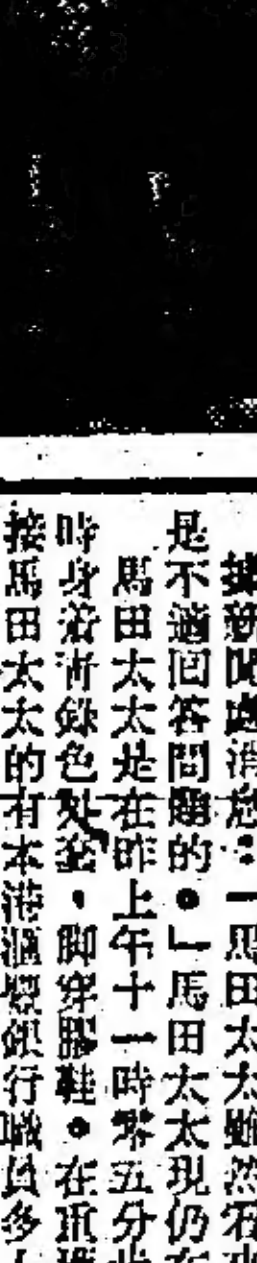 據新聞處消息：「馬田太太雖然
是不適回答問題的。」馬田太太現仍在
馬田太太是在昨上午十一時零五分
時身着青綠色外套，脚穿膠鞋。在
接馬田太太的有本港滙豐銀行職員多